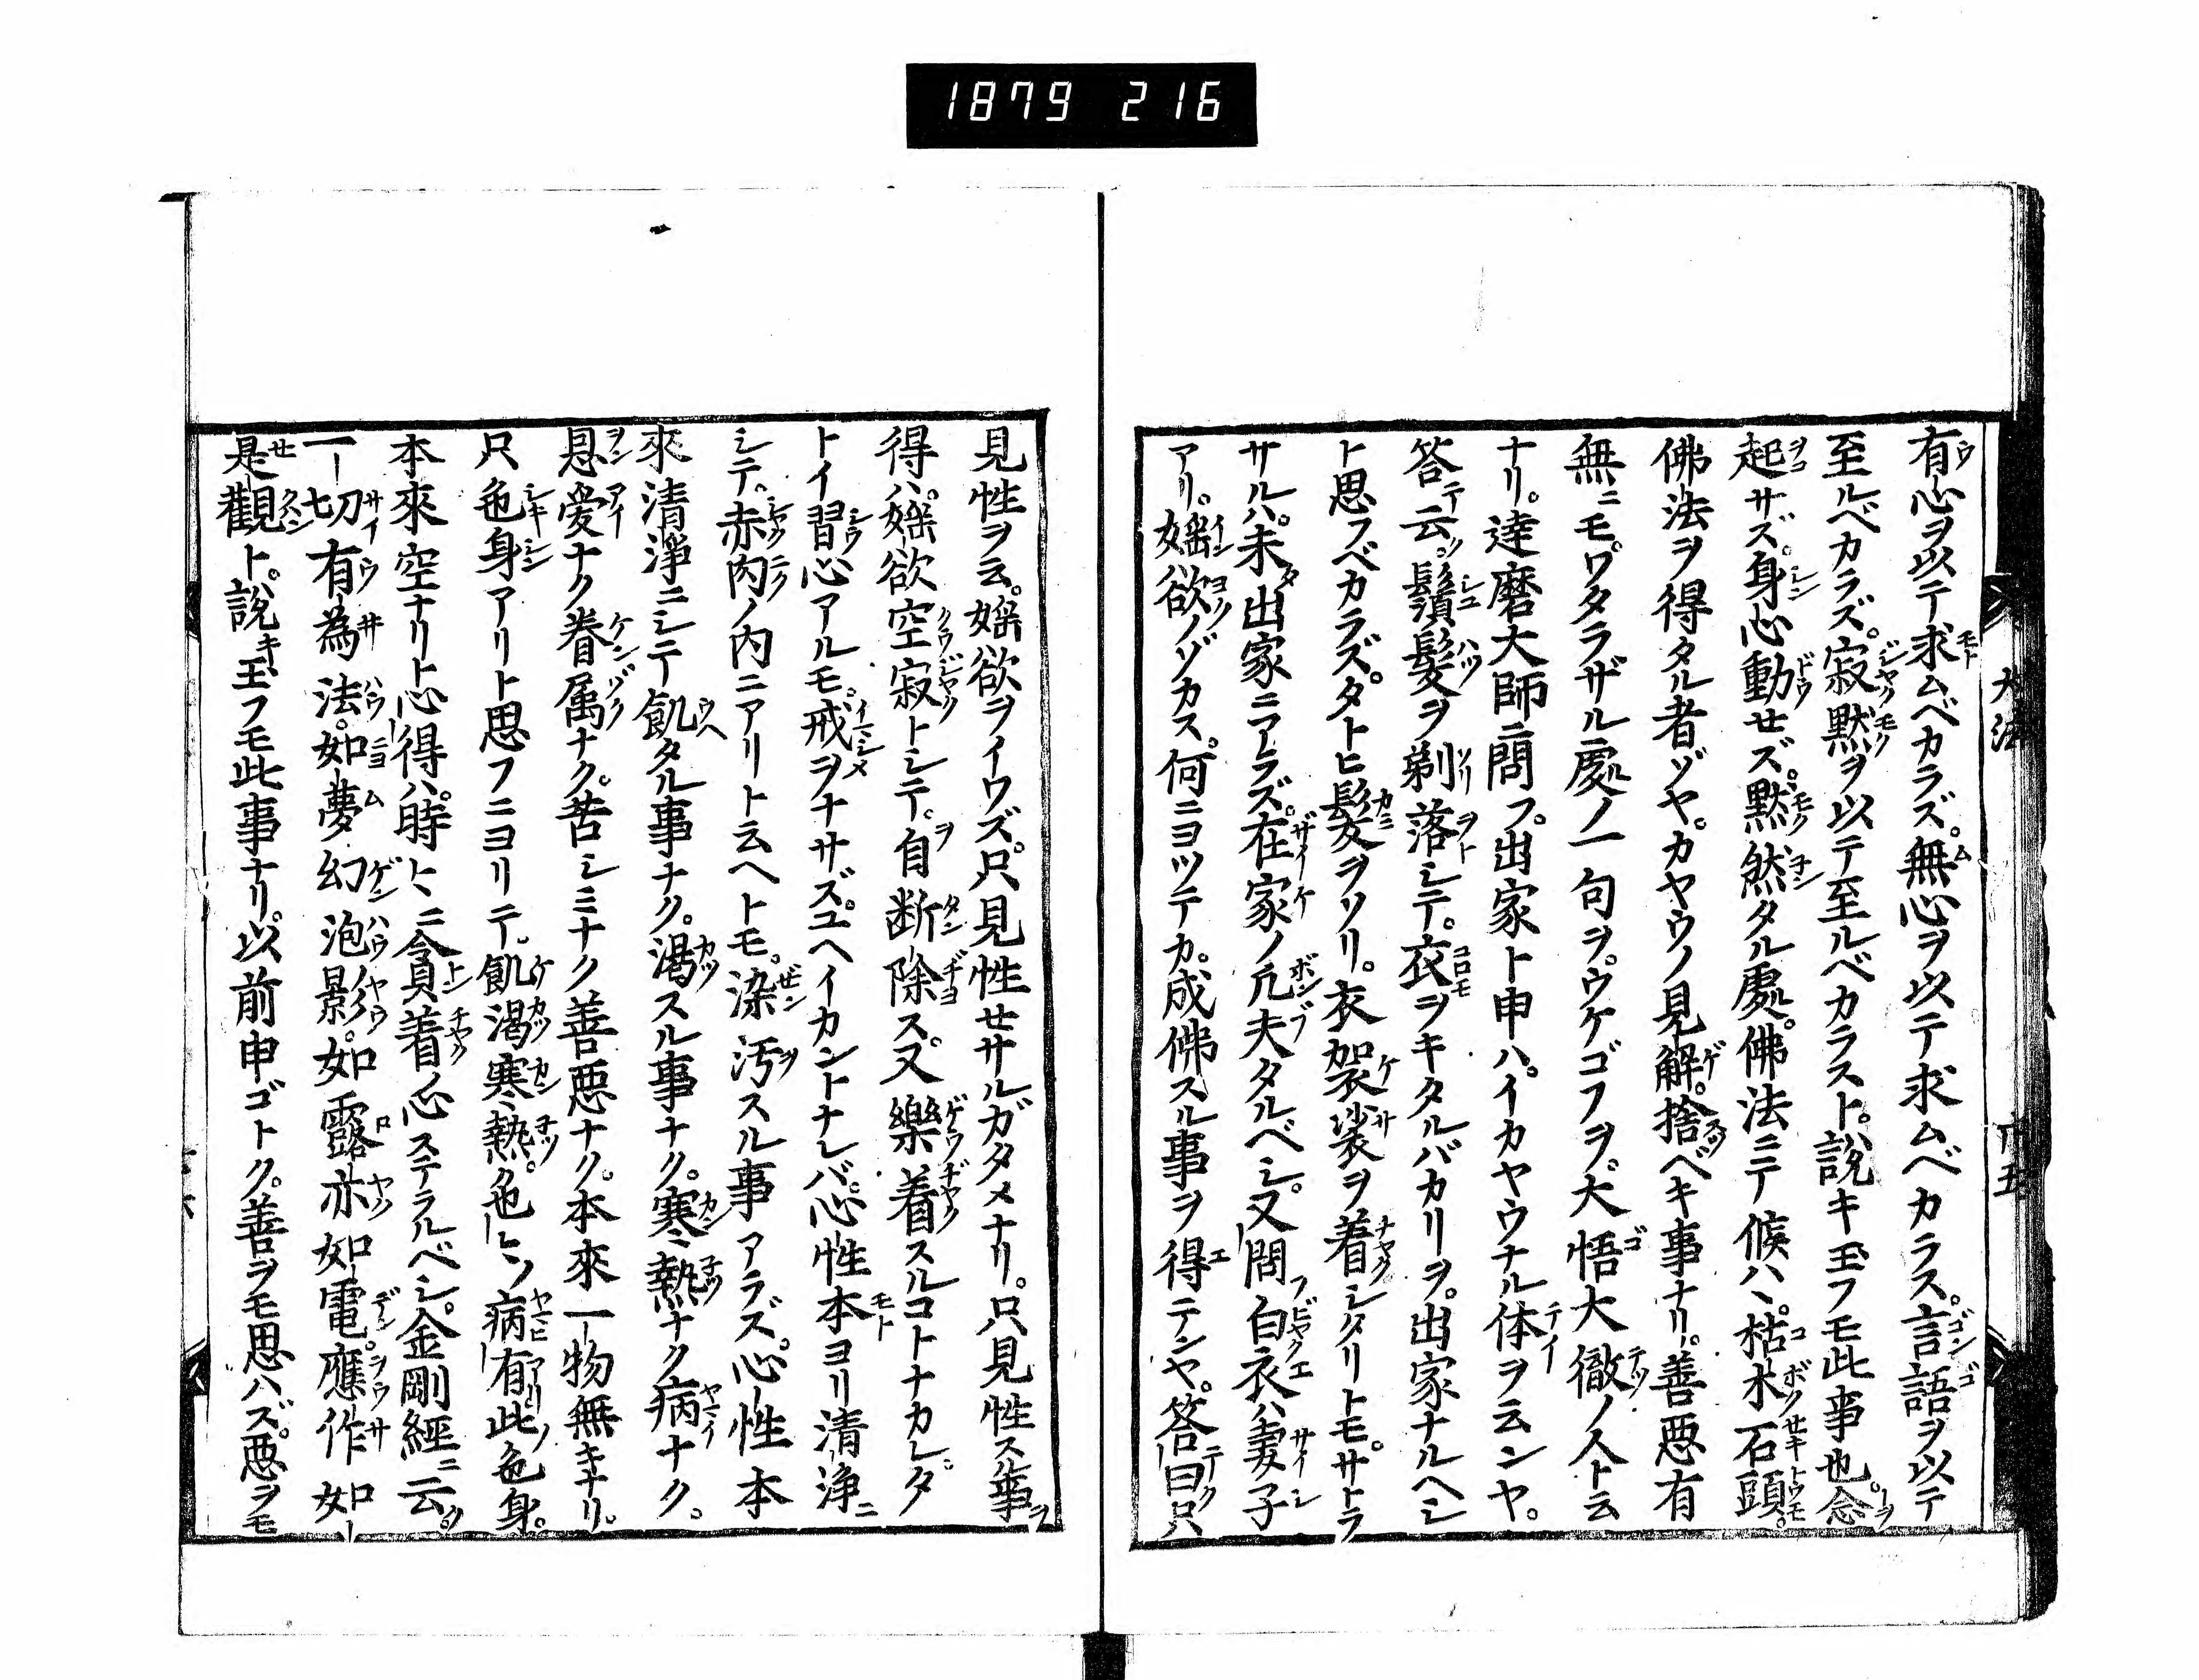 1879 216
有心ヲ以テ求ムベカラズ。無心ヲ以テ求ムベカラス。言語ヲ以テ
至ルベカラズ。寂黙ヲ以テ至ルベカラスト。説キ玉フモ此事也。念ヲ
起サズ。身心動せズ。黙然タル處。佛法ニテ候ハヽ。枯木石頭モ。
佛法ヲ得タル者ゾヤ。カヤウノ見解。捨ベキ事ナリ。善悪有
無ニモ。ワタラザル處ノ一句ヲ。ウケゴフヲ。大悟大徹ノ人ト云
ナリ。達磨大師ニ問フ。出家ト申ハ。イカヤウナル体ヲ云ンヤ。
答テ云ク。鬚髪ヲ剃落シテ。衣ヲキタルバカリヲ。出家ナルヘシ
ト思フベカラズ。タトヒ髪ヲソリ。衣袈裟ヲ着シタリトモ。サトラ
サルハ。未タ出家ニアラズ。在家ノ凢夫タルベシ。又問フ白衣ハ妻子
アリ。婬欲ノゾカス。何ニヨツテカ。成佛スル事ヲ得テンヤ。答テ曰ク只
大法
十五
見性ヲ云。婬欲ヲイワズ。只見性せサルガタメナリ。只見性スル事ヲ
得ハ。婬欲空寂トシテ。自ヲ断除ス。又樂着スルコトナカレ。タ
トイ習心アルモ。戒ヲナサズ。ユヘイカントナレバ。心性本ヨリ清浄ニ
シテ。赤肉ノ内ニアリト云ヘトモ。染汚スル事アラズ。心性本
來清浄ニシテ飢タル事ナク。渇スル事ナク。寒熱ナク病ナク。
恩愛ナク眷属ナク。苦シミナク善悪ナク。本來一物無キナリ。
只色身アリト思フニヨリテ。飢渇寒熱。病有此色身。
本來空ナリト心得ハ。時トヽニ貪着ノ心ステラルベシ。金剛經ニ云ク。
一切有為法。如夢幻泡影。如露亦如電。應作如
是觀ト。説キ玉フモ此事ナリ。以前申ゴトク。善ヲモ思ハズ。悪ヲモ